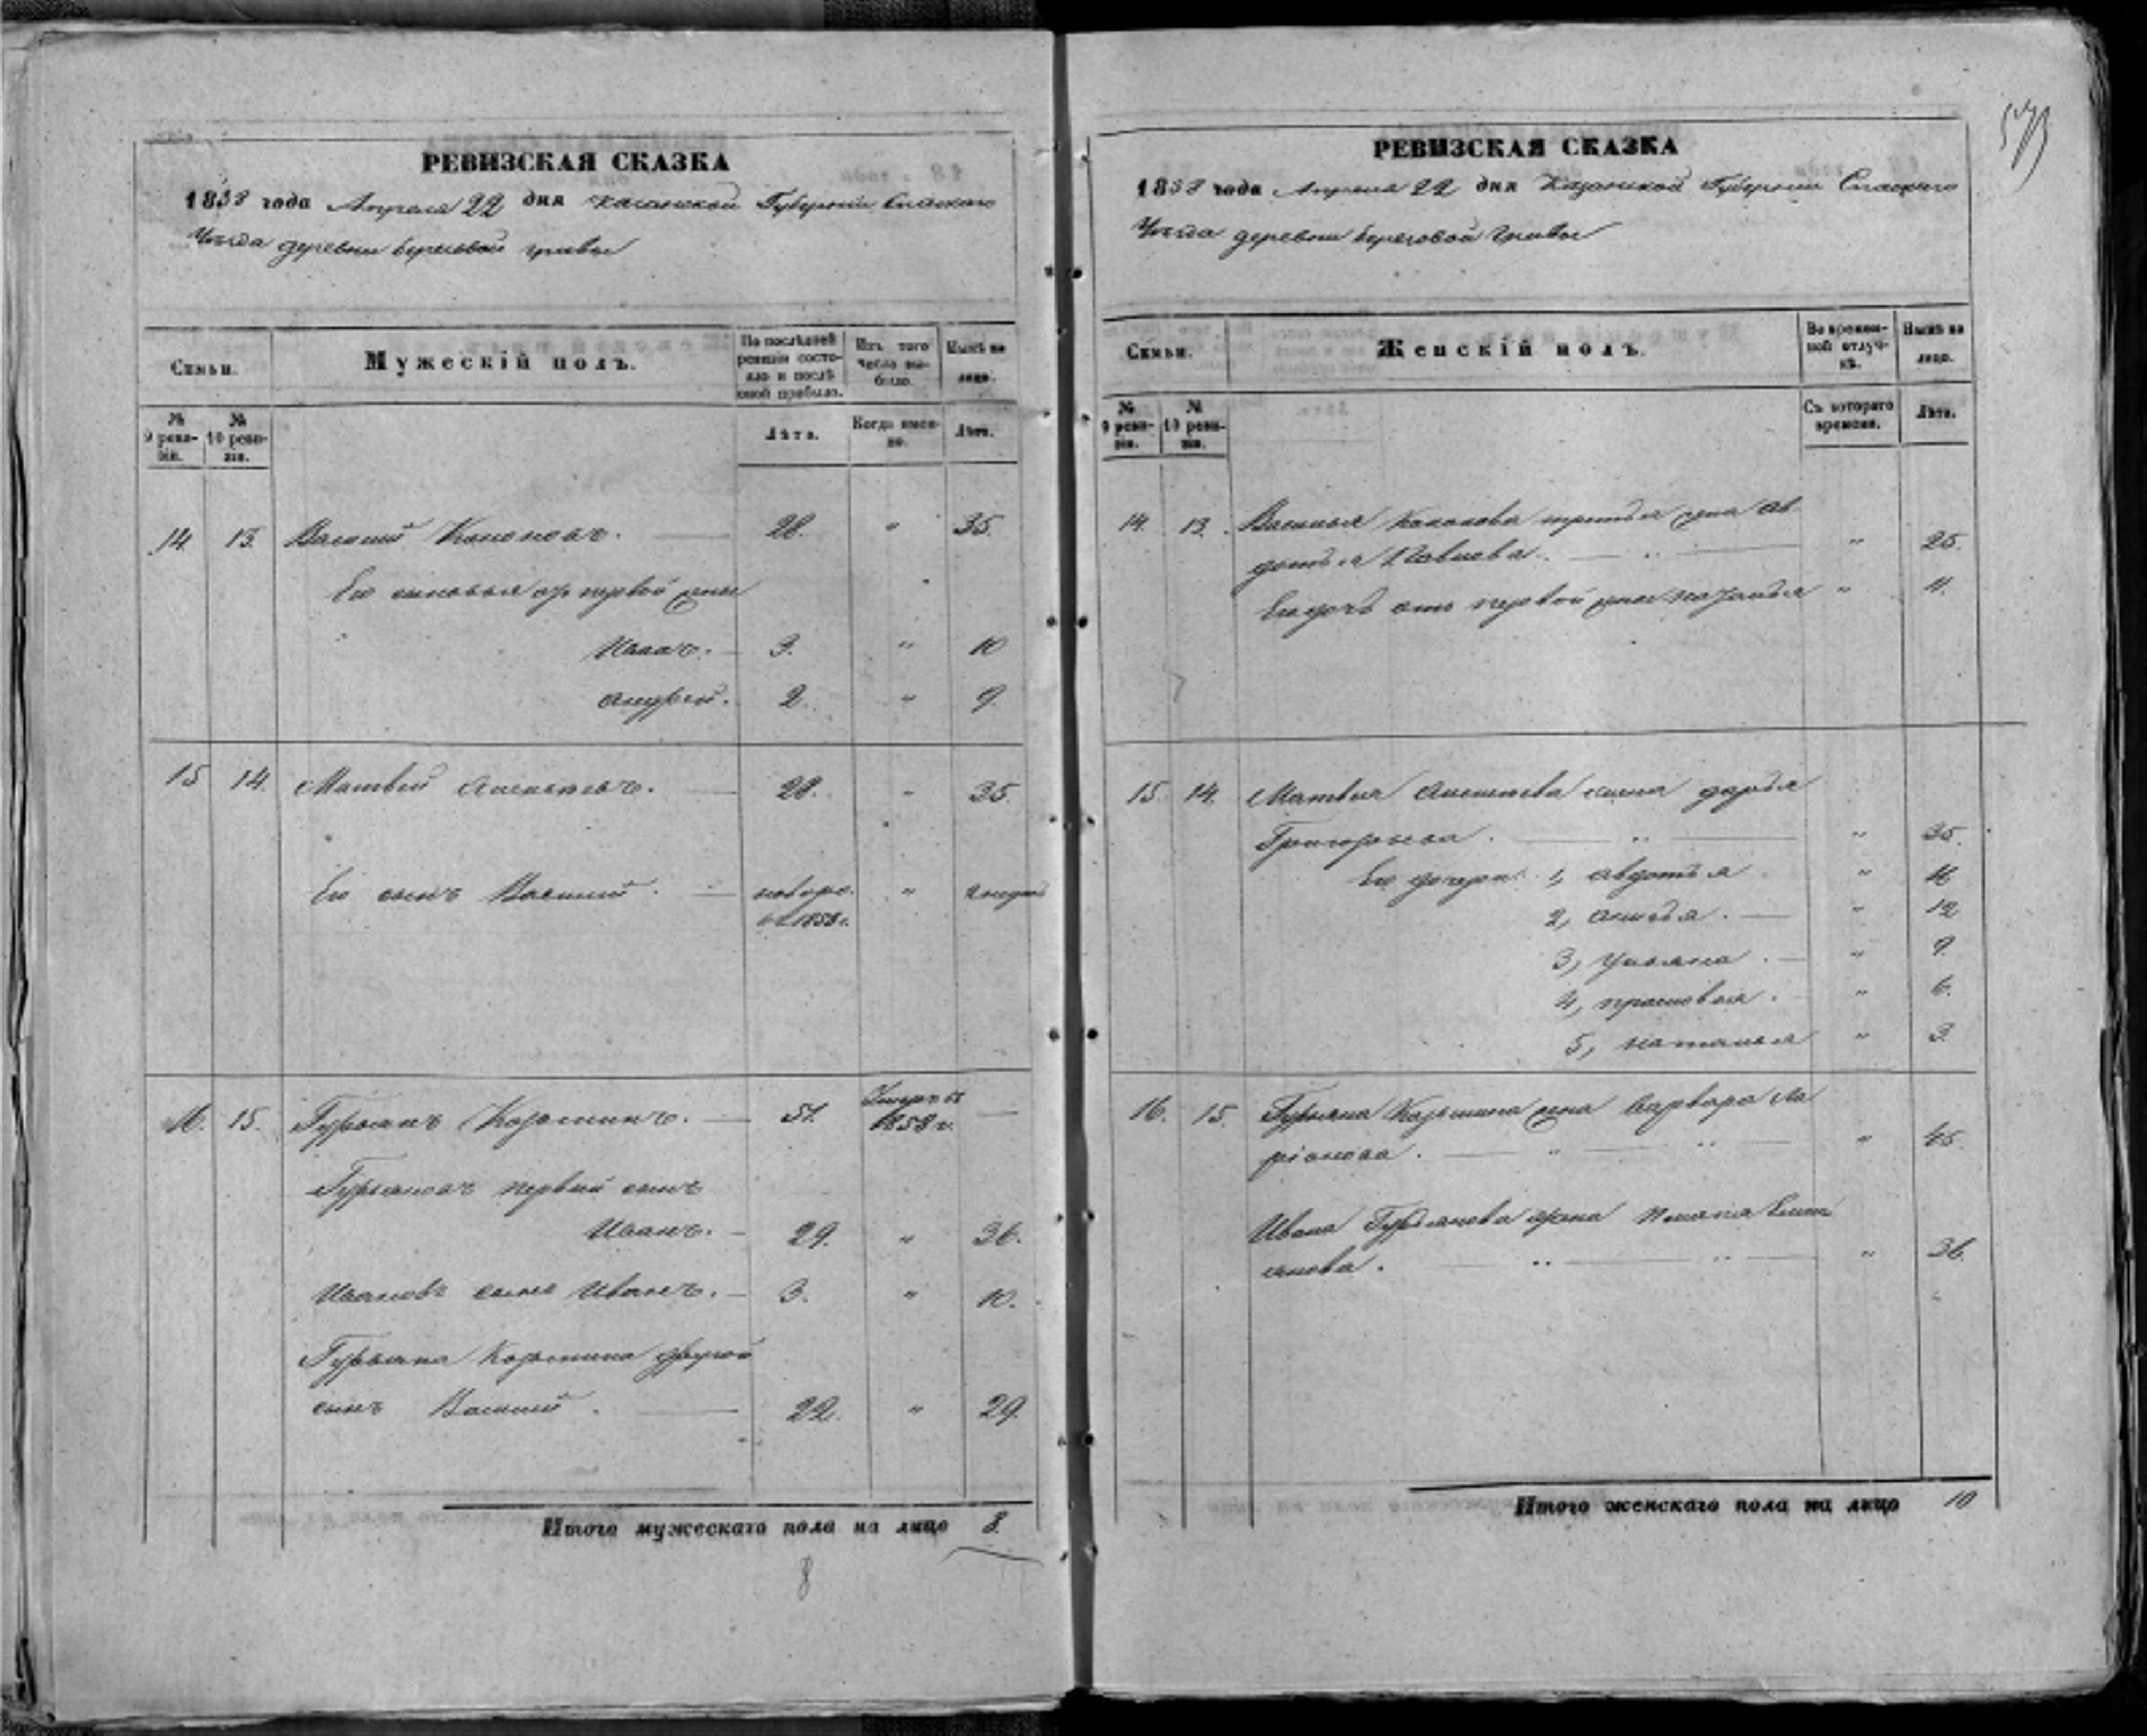 РЕВИЗСКАЯ СКАЗКА
1858 года Апреля 22 дня Казанской Губернии Спаскаго
Уезда деревни береговой гривы
Семьи.
Мужескій полъ.
По последней ревизіи состояло и после оной прибыло.
Изъ того числа выбыло.
Ныне на лицо.
№ 9 ревизіи.
№ 10 ревизіи.
Лѣта.
Когда именно.
Лѣта.
14. 13. Василій Кононовъ. 28. " 35.
Его сыновья отъ первой жены
Иванъ. 3. " 10
Андрей. 2. " 9.
15 14. Матвей 28. " 35.
Его сынъ Василій. новорож. "
въ 1858 г.
16. 15. Гурьянъ Козьминъ. 51. Умеръ въ 1858 г. —
Гурьяновъ первый сынъ
Иванъ. 29. " 36.
Ивановъ сынъ Иванъ. 3. " 10.
Гурьяна Козьмина другой
сынъ Василій. 22. " 29.
Итого мужескаго пола на лицо 8.
8
573
РЕВИЗСКАЯ СКАЗКА
1858 года Апреля 22 дня Казанской Губернии Спаскаго
Уезда деревни береговой гривы
Семьи.
Женскій полъ.
Во временной отлучкѣ.
Ныне на лицо.
№ 9 ревизіи.
№ 10 ревизіи.
Съ котораго времени.
Лѣта.
14. 13. Василья Кононова жена Ав
дотья Павлова. " 25.
Его дочь отъ первой жены " 11.
15. 14. Матвея жена дарья
Григорьева. " 35.
Его дочери: 1, авдотья " 16
2, " 12
3, ульяна. " 9.
4, прасковья. " 6.
5, наталья " 3.
16. 15. Гурьяна Козьмина жена варвара Ла
ріонова. " 45.
Ивана Гурьянова жена
янова. " 36.
Итого женскаго пола на лицо 10